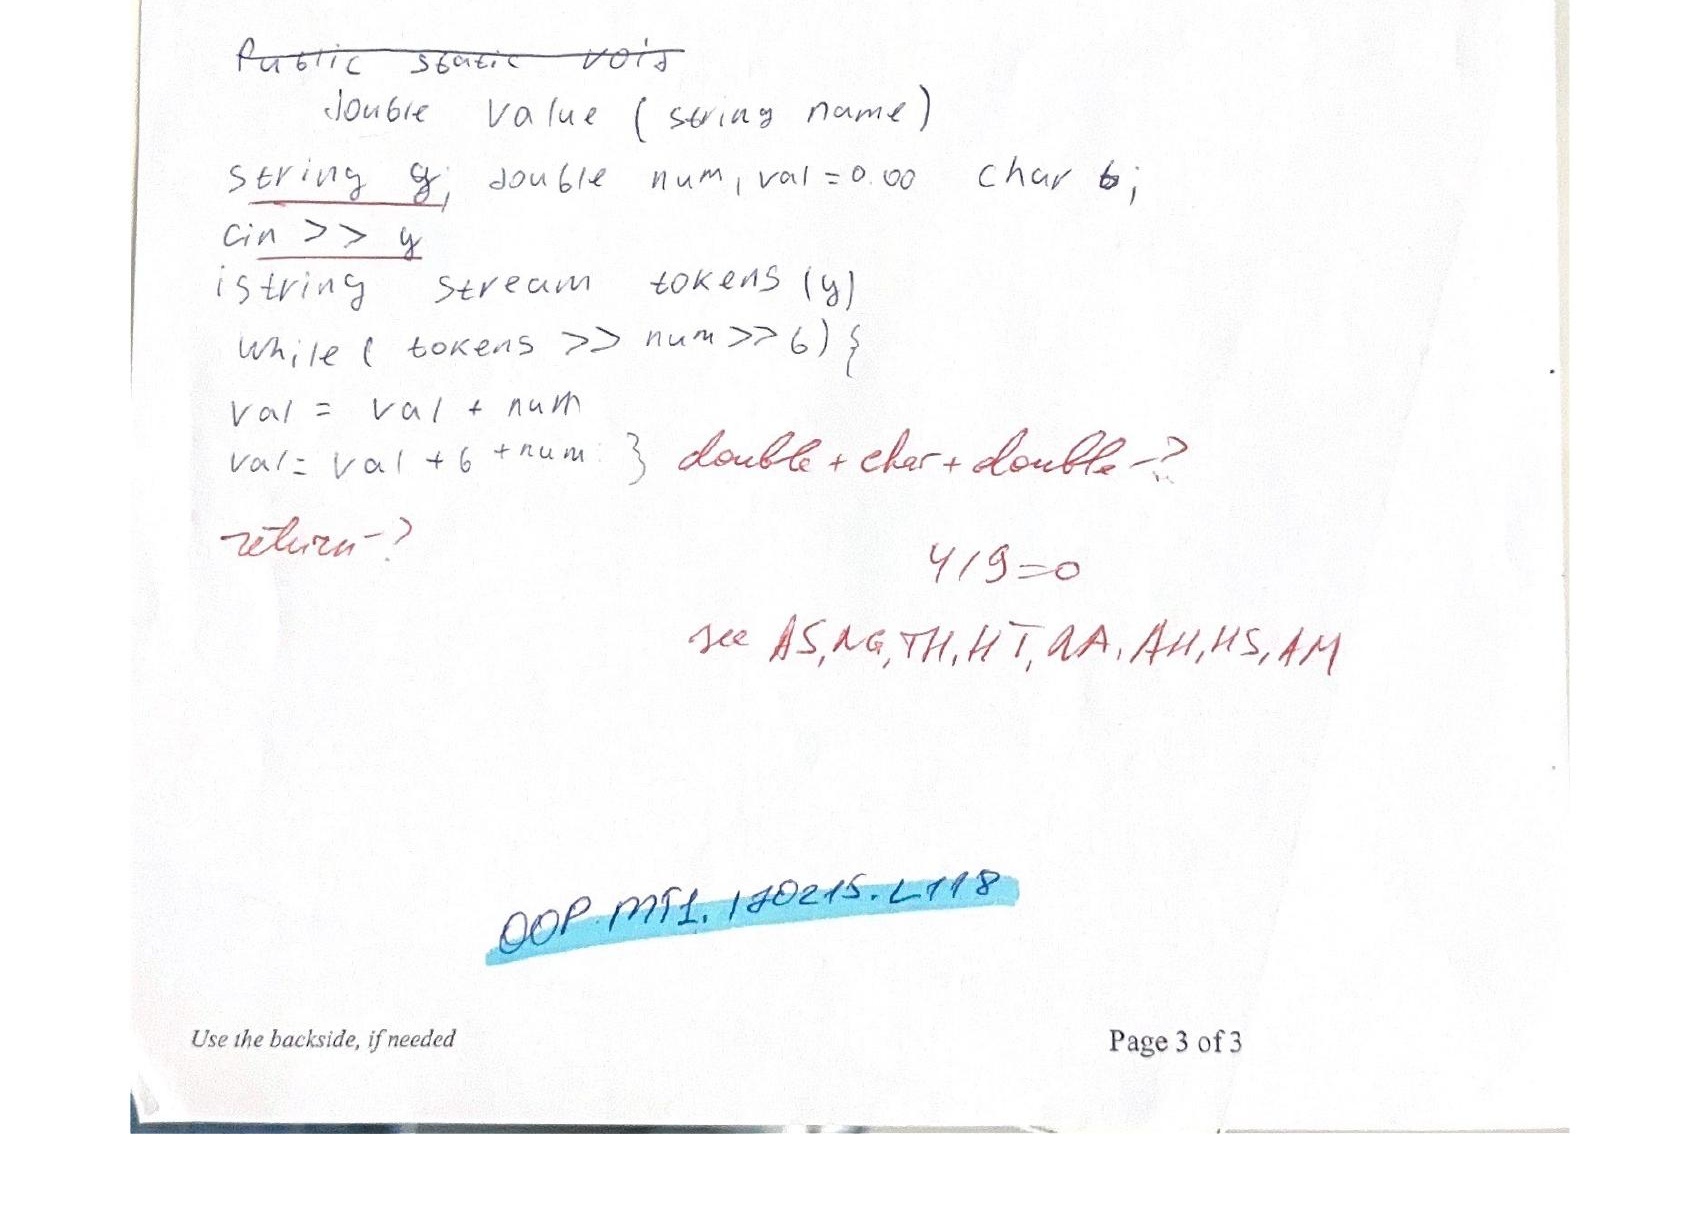 Public static void
double value (string name)
string y; double num, val = 0.00 char b;
cin >> y
istring stream tokens (y)
while ( tokens >> num >> b) {
val = val + num
val = val + b + num } double + char + double - ?
return - ?
4/9=0
see AS, NG, TH, HT, AA, AH, HS, AM
OOP.MT1.170215.L118
Use the backside, if needed
Page 3 of 3